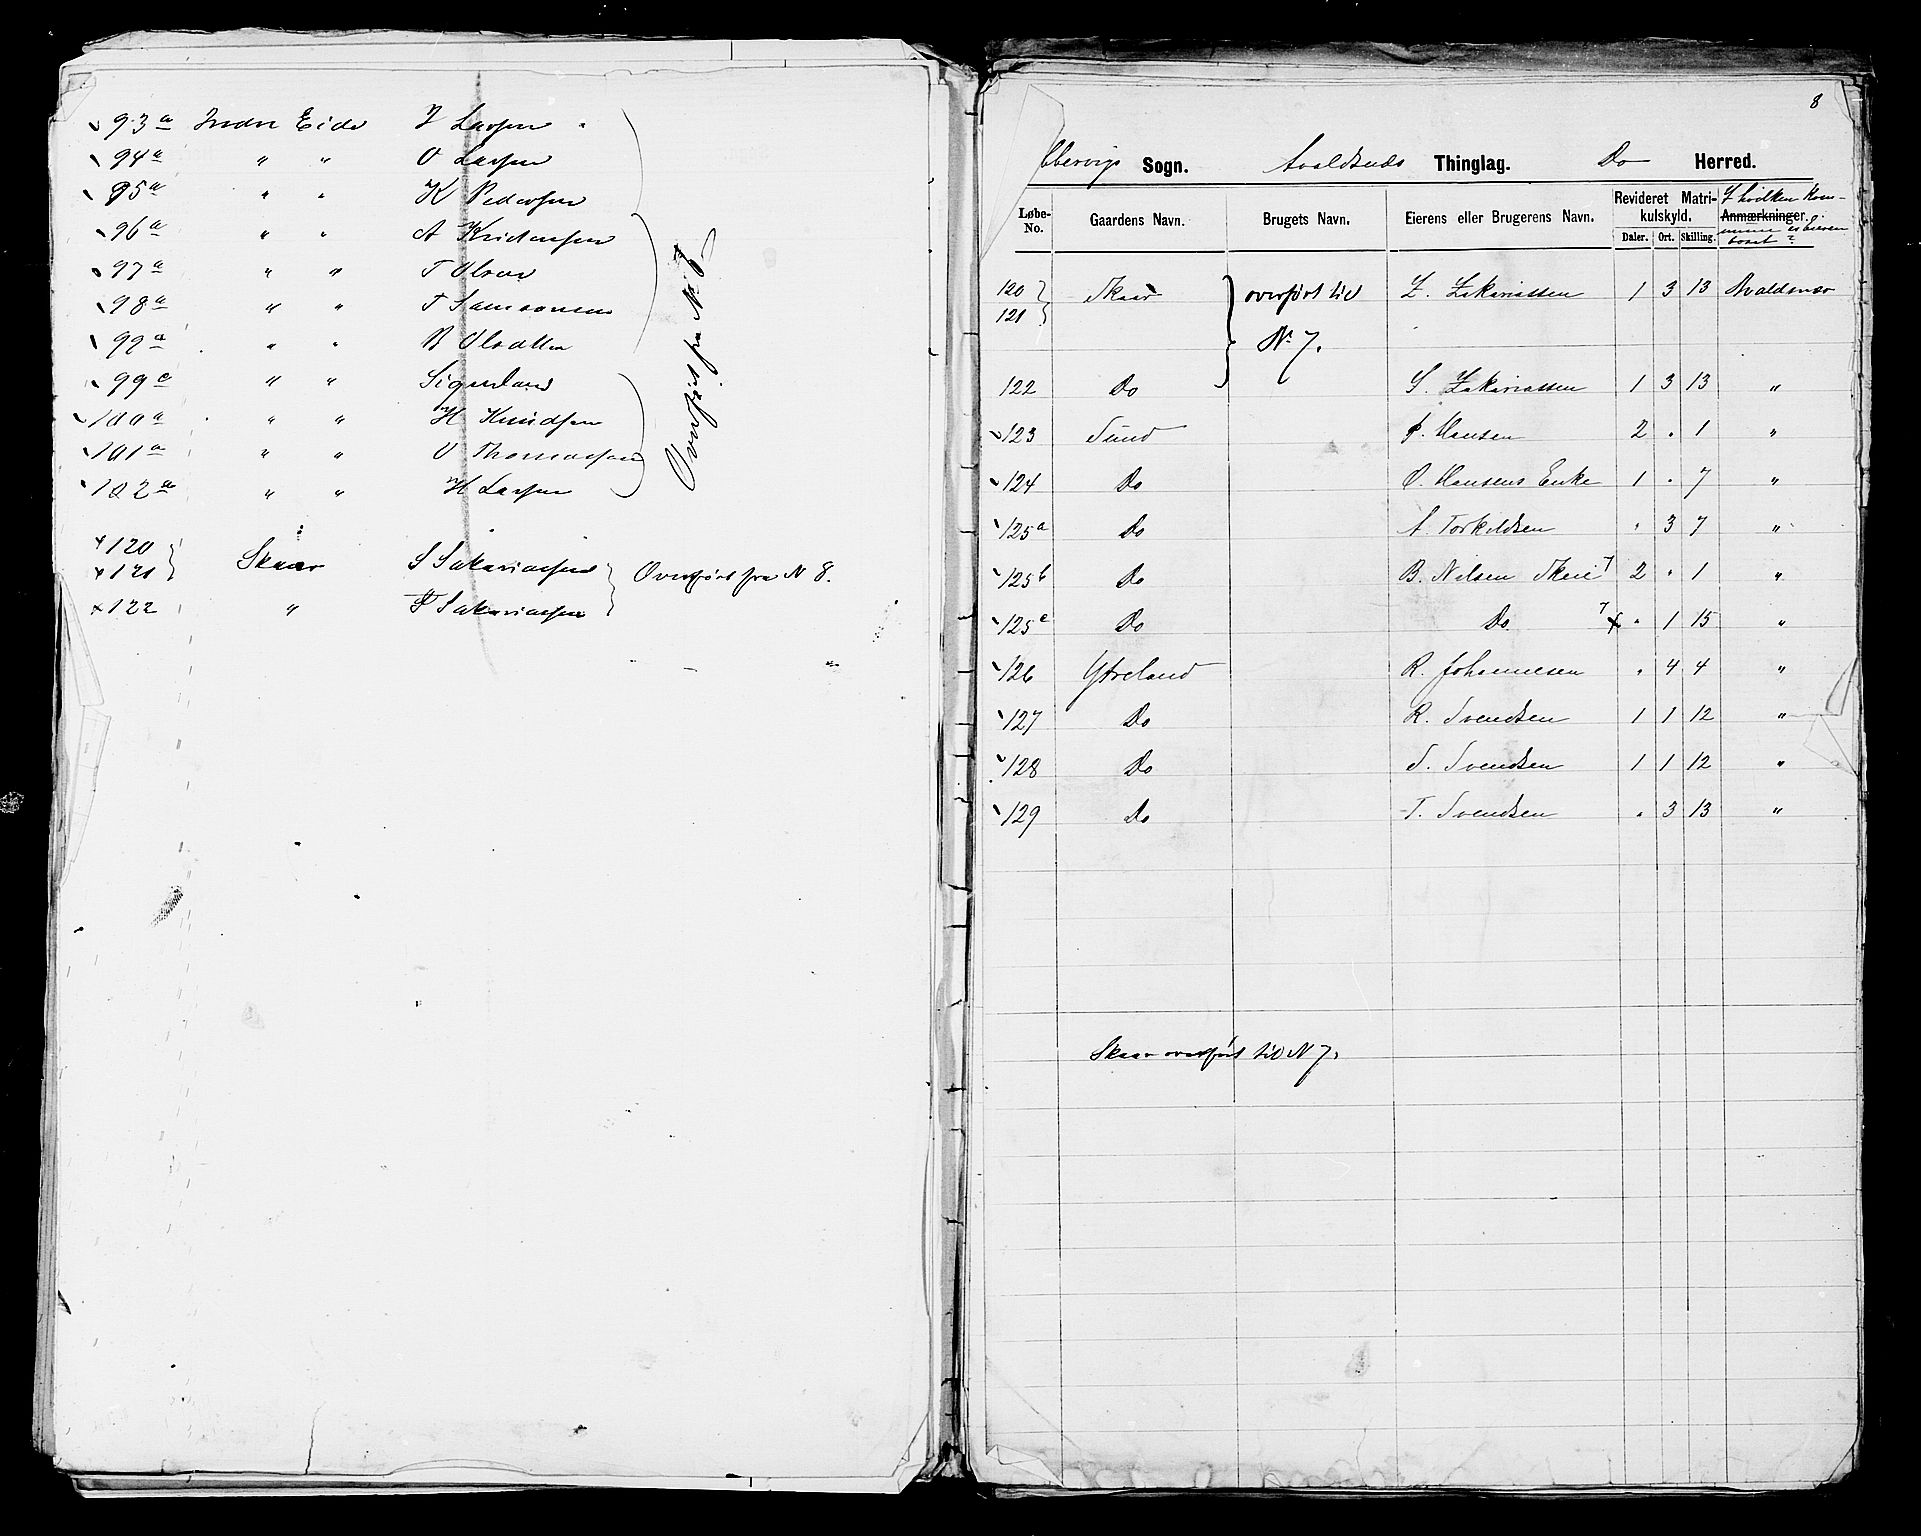 93a Indre Eide J Larsen
94a " " O Larsen
95a " " K Pedersen
96a " " A Kristensen
97a " " T Olsen
98a " " T Samsonsen
99a " " B Olsdtter
99c " "
100a " " H Knudsen
101a " " O Thomassen
102a " " H Larsen
Overført fra N 6
120
121 Skaar S Sakariassen
122 " T Sakariassen
Overført fra N 8.
8
Sogn. Avaldsnes Thinglag. Do Herred.
Løbe-No. Gaardens Navn. Brugets Navn. Eierens eller Brugerens Navn. Revideret Matrikulskyld. Anmærkninger.
Daler. Ort. Skilling. I hvilken Kommune er Eieren bosat?
120
121 Skaar overført til Z. Zakariassen 1 3 13 Avaldsnes
N: 7.
122 Do S. Zakariassen 1 3 13 "
123 Sund P. Hansen 2 . 1 "
124 Do O. Hansens Enke 1 . 7 "
125a Do A. Torkildsen . 3 7 "
125b Do B. Nilsen Skeie 7 2 . 1 "
125c Do Do 7 . 1 15 "
126 Ytreland R. Johannesen . 4 4 "
127 Do R. Svendsen 1 1 12 "
128 Do S. Svendsen 1 1 12 "
129 Do T. Svendsen . 3 13 "
Skaar overført til N 7.